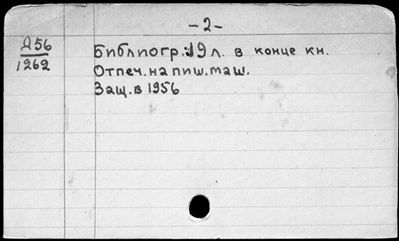 -2-
Д56
1262
Библиогр.: 19 л. в конце кн.
Отпеч. на пиш. маш.
Защ. в 1956